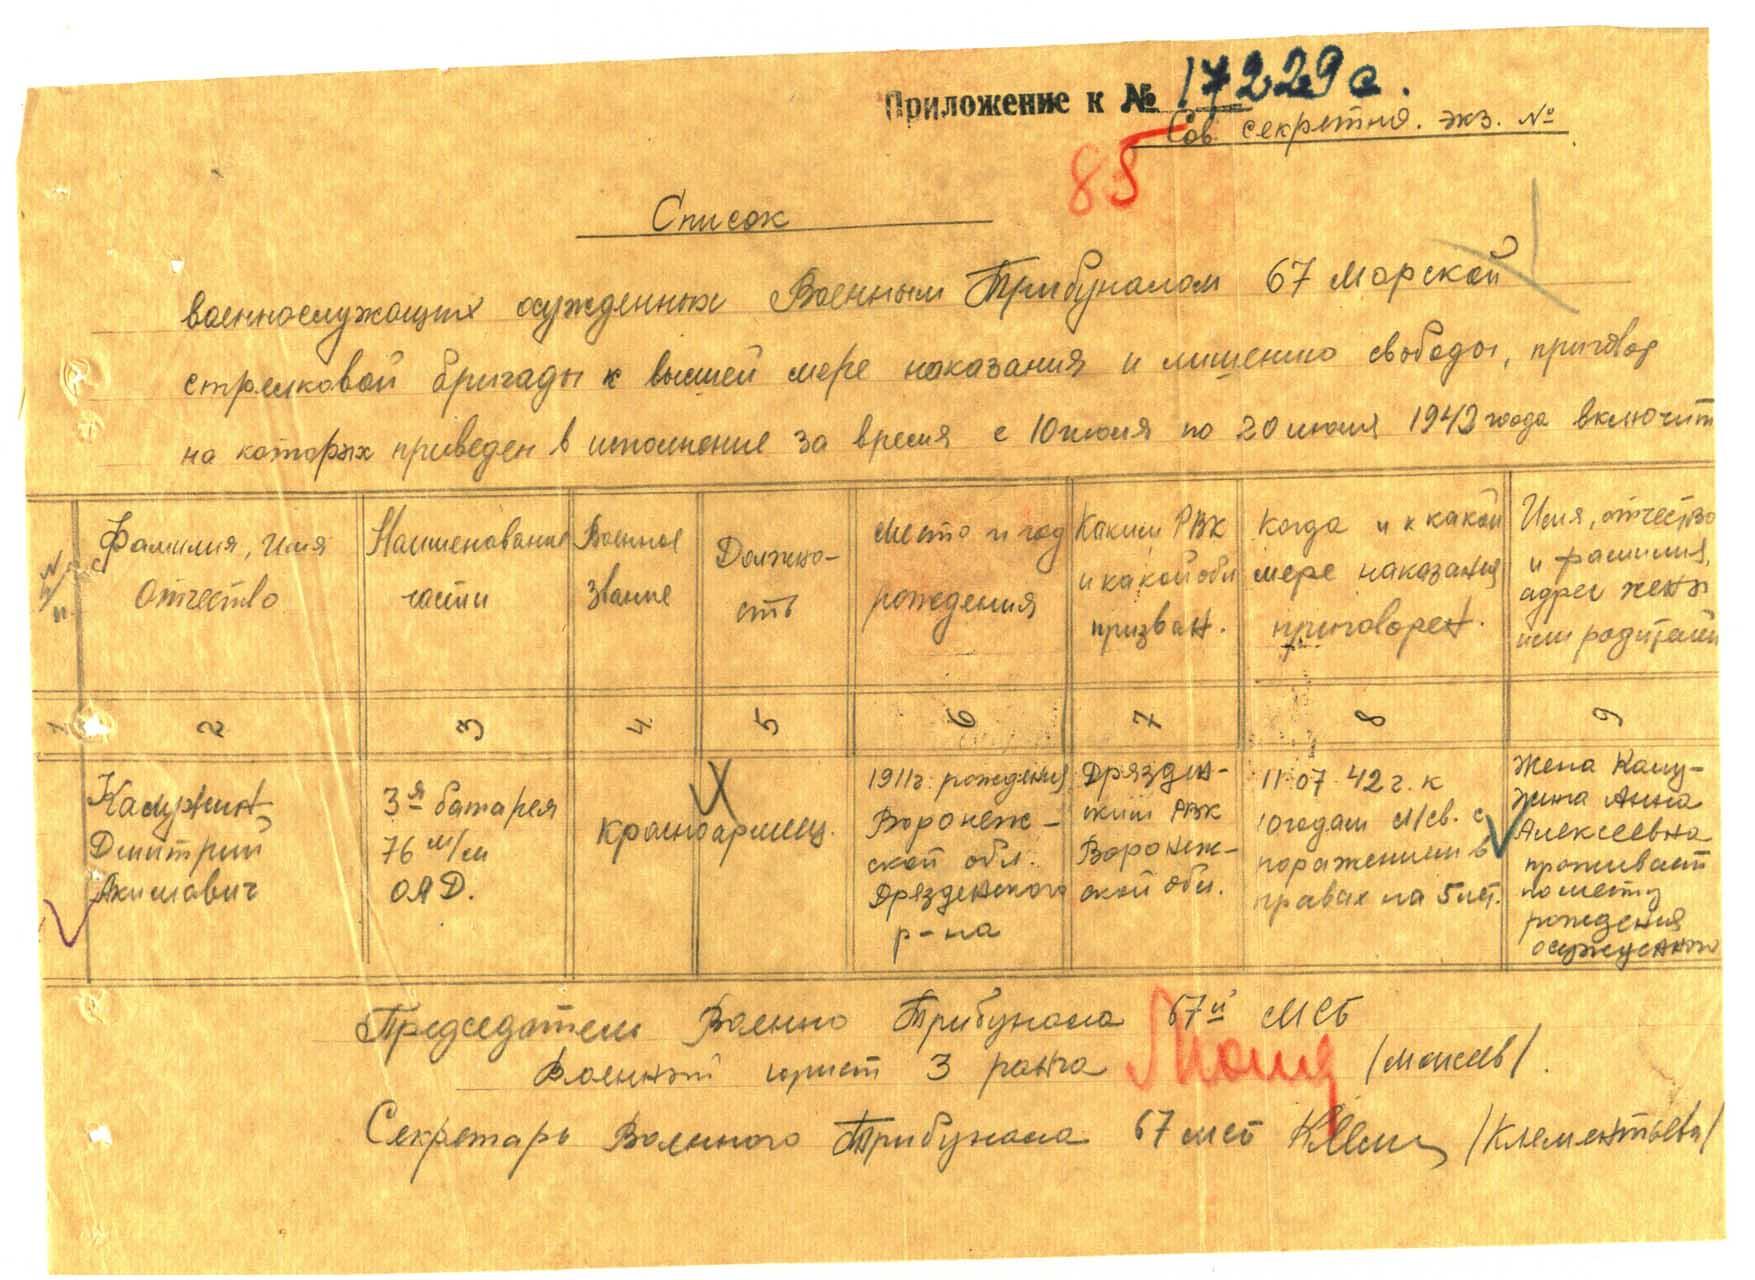 Приложение к № 17229с.
Сов. секретно. экз. №
85
Список
военнослужащих осужденных Военным Трибуналом 67 Морской
стрелковой бригады к высшей мере наказания и лишению свободы, приговор
на которых приведен в исполнение за время с 10 июля по 20 июля 1942 года включит
Фамилия, Имя
Отчество
Наименование
части
Военное
звание
Должно-
сть
Место и год
рождения
Каким РВК
и какой обл
призван.
Когда и к какой
мере наказания
приговорен.
Имя, отчество
и фамилия,
адрес жены
или родителей
1 2 3 4 5 6 7 8 9
Калужин
Дмитрий
Акимович
3я батарея
76 м/м
ОАД.
красноармеец.
1911г. рождения
Воронеж-
ской обл.
Дрязденского
р-на
Дрязден-
ским РВК
Воронеж-
ской обл.
11.07.42г. к
10 годам л/св. с
поражением в
правах на 5 лет.
Жена Калу-
жина Анна
Алексеевна
проживает
по месту
рождения
осужденного
Председатель Военно Трибунала 67й МСБ
Военный юрист 3 ранга /Моисеев/.
Секретарь Военного Трибунала 67 МСБ /Клементьева/